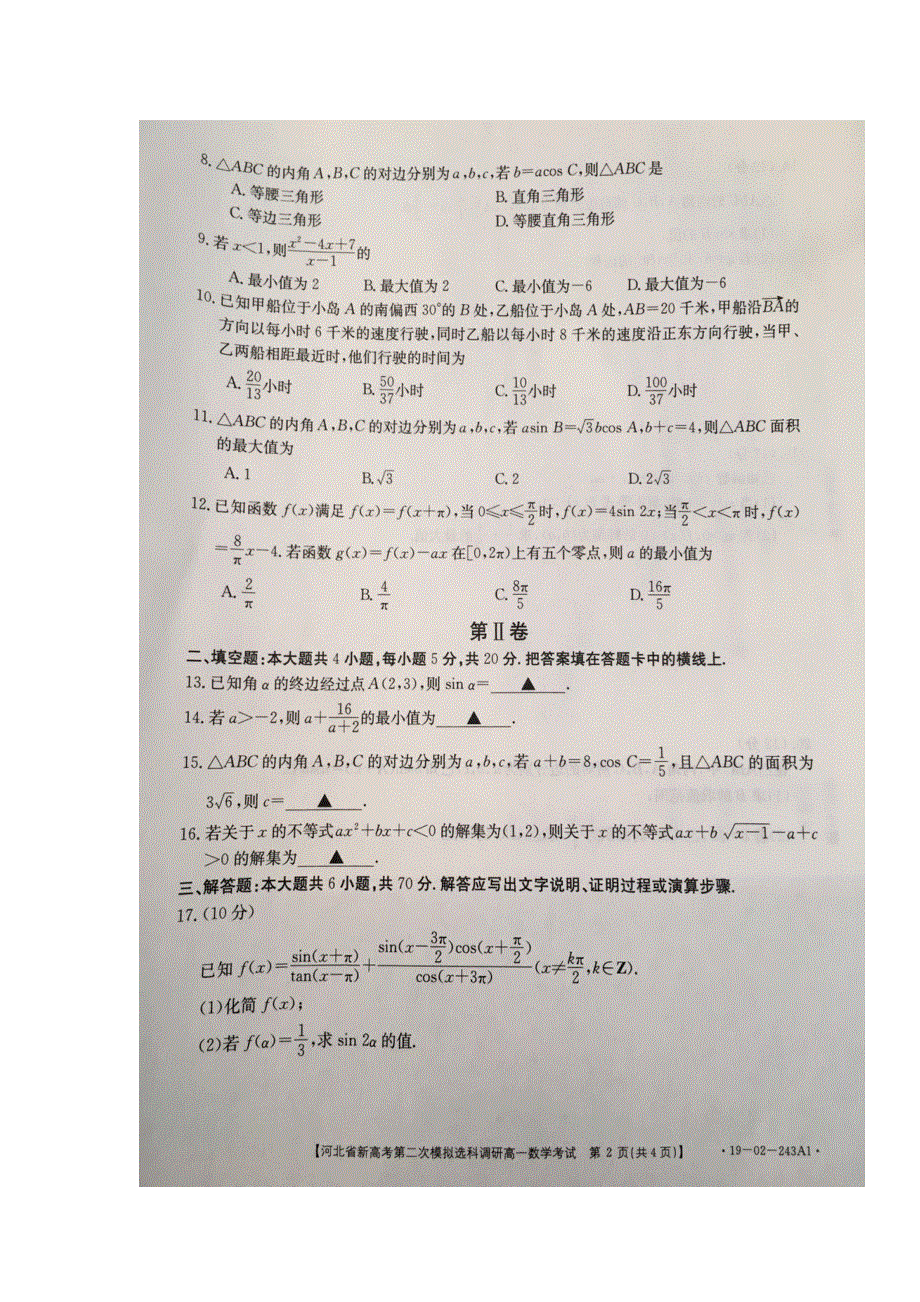 8. △ABC 的内角 A,B,C 的对边分别为 a,b,c,若 b=acos C,则△ABC 是
A. 等腰三角形 B. 直角三角形
C. 等边三角形 D. 等腰直角三角形
9. 若 x<1,则\frac{x²-4x+7}{x-1}的
A. 最小值为 2 B. 最大值为 2 C. 最小值为-6 D. 最大值为-6
10. 已知甲船位于小岛 A 的南偏西 30°的 B 处,乙船位于小岛 A 处,AB=20 千米,甲船沿\overrightarrow{BA}的
方向以每小时 6 千米的速度行驶,同时乙船以每小时 8 千米的速度沿正东方向行驶,当甲、
乙两船相距最近时,他们行驶的时间为
A. \frac{20}{13}小时 B. \frac{50}{37}小时 C. \frac{10}{13}小时 D. \frac{100}{37}小时
11. △ABC 的内角 A,B,C 的对边分别为 a,b,c,若 asin B=√3bcos A,b+c=4,则△ABC 面积
的最大值为
A. 1 B. √3 C. 2 D. 2√3
12. 已知函数 f(x)满足 f(x)=f(x+π),当 0≤x≤\frac{π}{2}时,f(x)=4sin 2x;当\frac{π}{2}<x<π 时,f(x)
=\frac{8}{π}x-4. 若函数 g(x)=f(x)-ax 在[0,2π)上有五个零点,则 a 的最小值为
A. \frac{2}{π} B. \frac{4}{π} C. \frac{8π}{5} D. \frac{16π}{5}
第Ⅱ卷
二、填空题:本大题共 4 小题,每小题 5 分,共 20 分. 把答案填在答题卡中的横线上.
13. 已知角 α 的终边经过点 A(2,3),则 sin α=___▲___.
14. 若 a>-2,则 a+\frac{16}{a+2}的最小值为___▲___.
15. △ABC 的内角 A,B,C 的对边分别为 a,b,c,若 a+b=8,cos C=\frac{1}{5},且△ABC 的面积为
3√6,则 c=___▲___.
16. 若关于 x 的不等式 ax²+bx+c<0 的解集为(1,2),则关于 x 的不等式 ax+b\sqrt{x-1}-a+c
>0 的解集为___▲___.
三、解答题:本大题共 6 小题,共 70 分. 解答应写出文字说明、证明过程或演算步骤.
17. (10 分)
已知 f(x)=\frac{sin(x+π)}{tan(x-π)}+\frac{sin(x-\frac{3π}{2})cos(x+\frac{π}{2})}{cos(x+3π)}(x≠\frac{kπ}{2},k∈Z).
(1)化简 f(x);
(2)若 f(α)=\frac{1}{3},求 sin 2α 的值.
【河北省新高考第二次模拟选科调研高一数学考试 第 2 页(共 4 页)】 ·19-02-243A1·